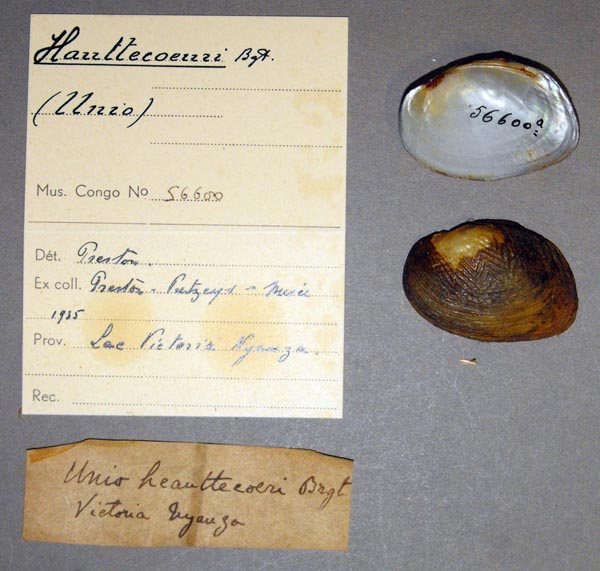 Hauttecoeuri Bgt.
(Unio)
Mus. Congo No 56600
Dét. Preston.
Ex coll. Preston - Putzeys - Musée
1935
Prov. Lac Victoria Nyanza
Rec.
Unio heauttecoeri Brgt
Victoria Nyanza
56600a